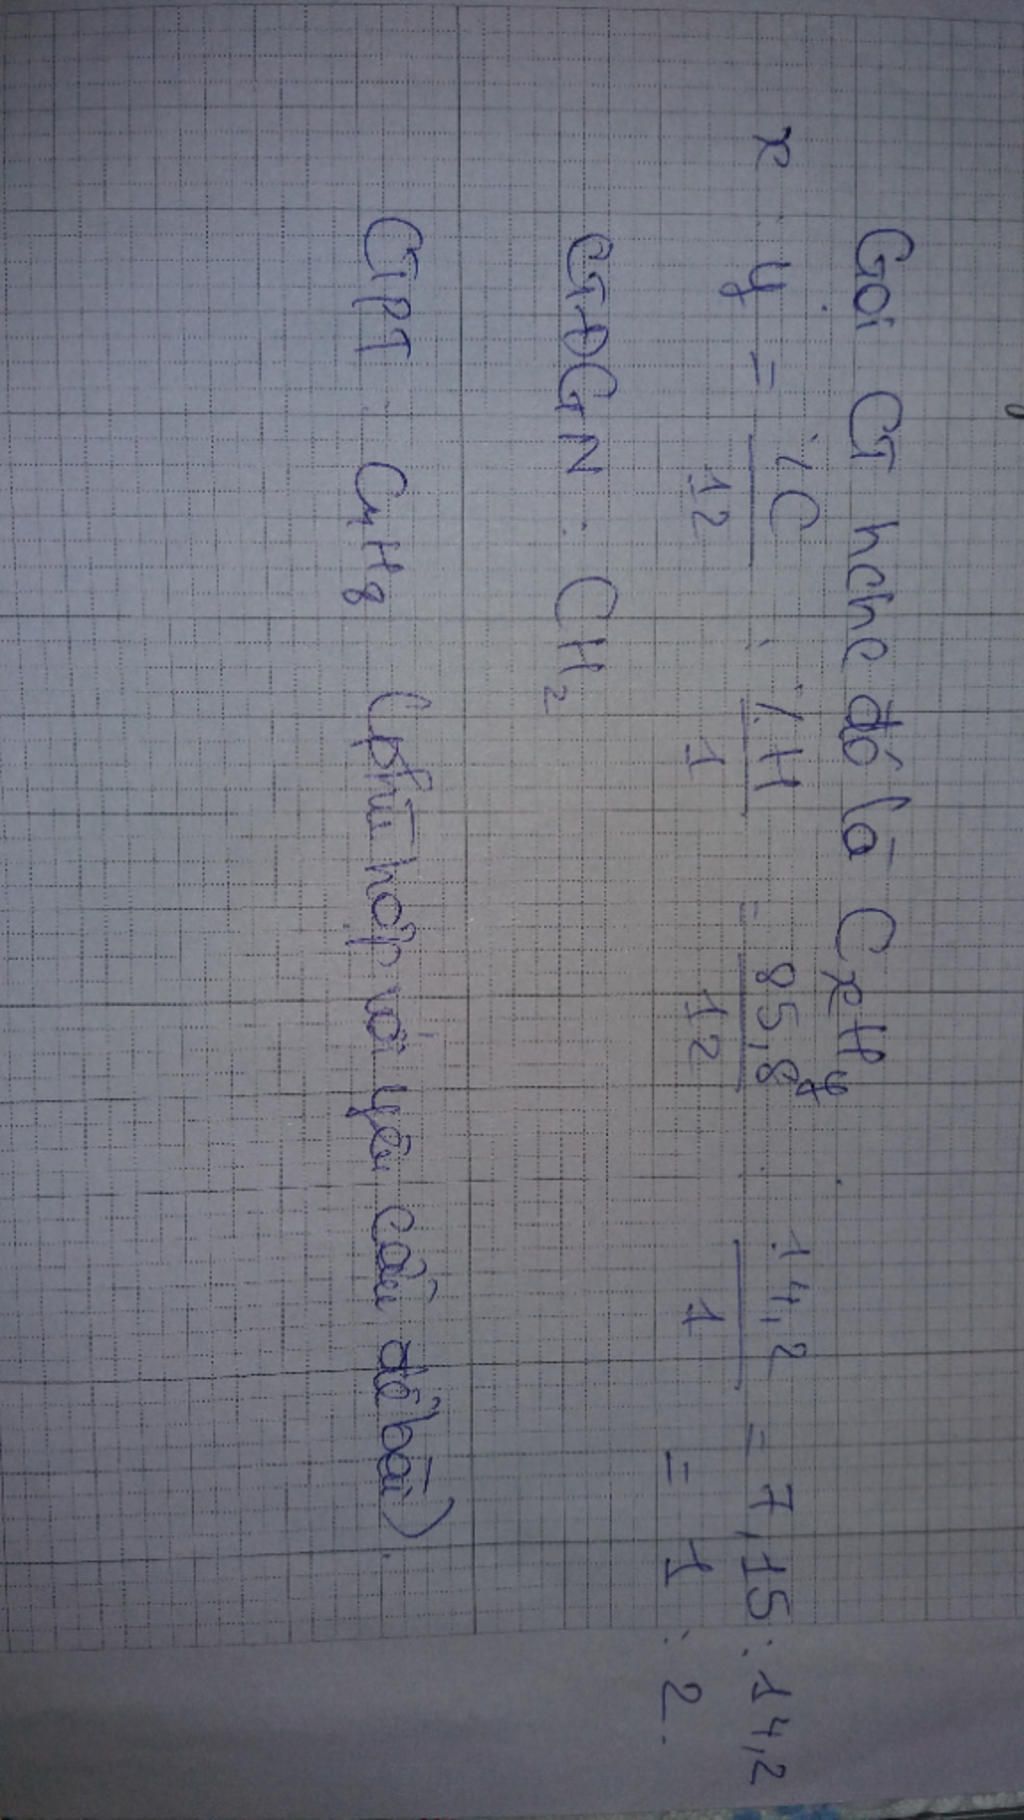 Gọi CT hchc đó là CxHy
x : y = %C/12 : %H/1 = 85,8/12 : 14,2/1 = 7,15 : 14,2
= 1 : 2.
CTĐGN : CH2
CTPT : C4H8 (phù hợp với yêu cầu đề bài).